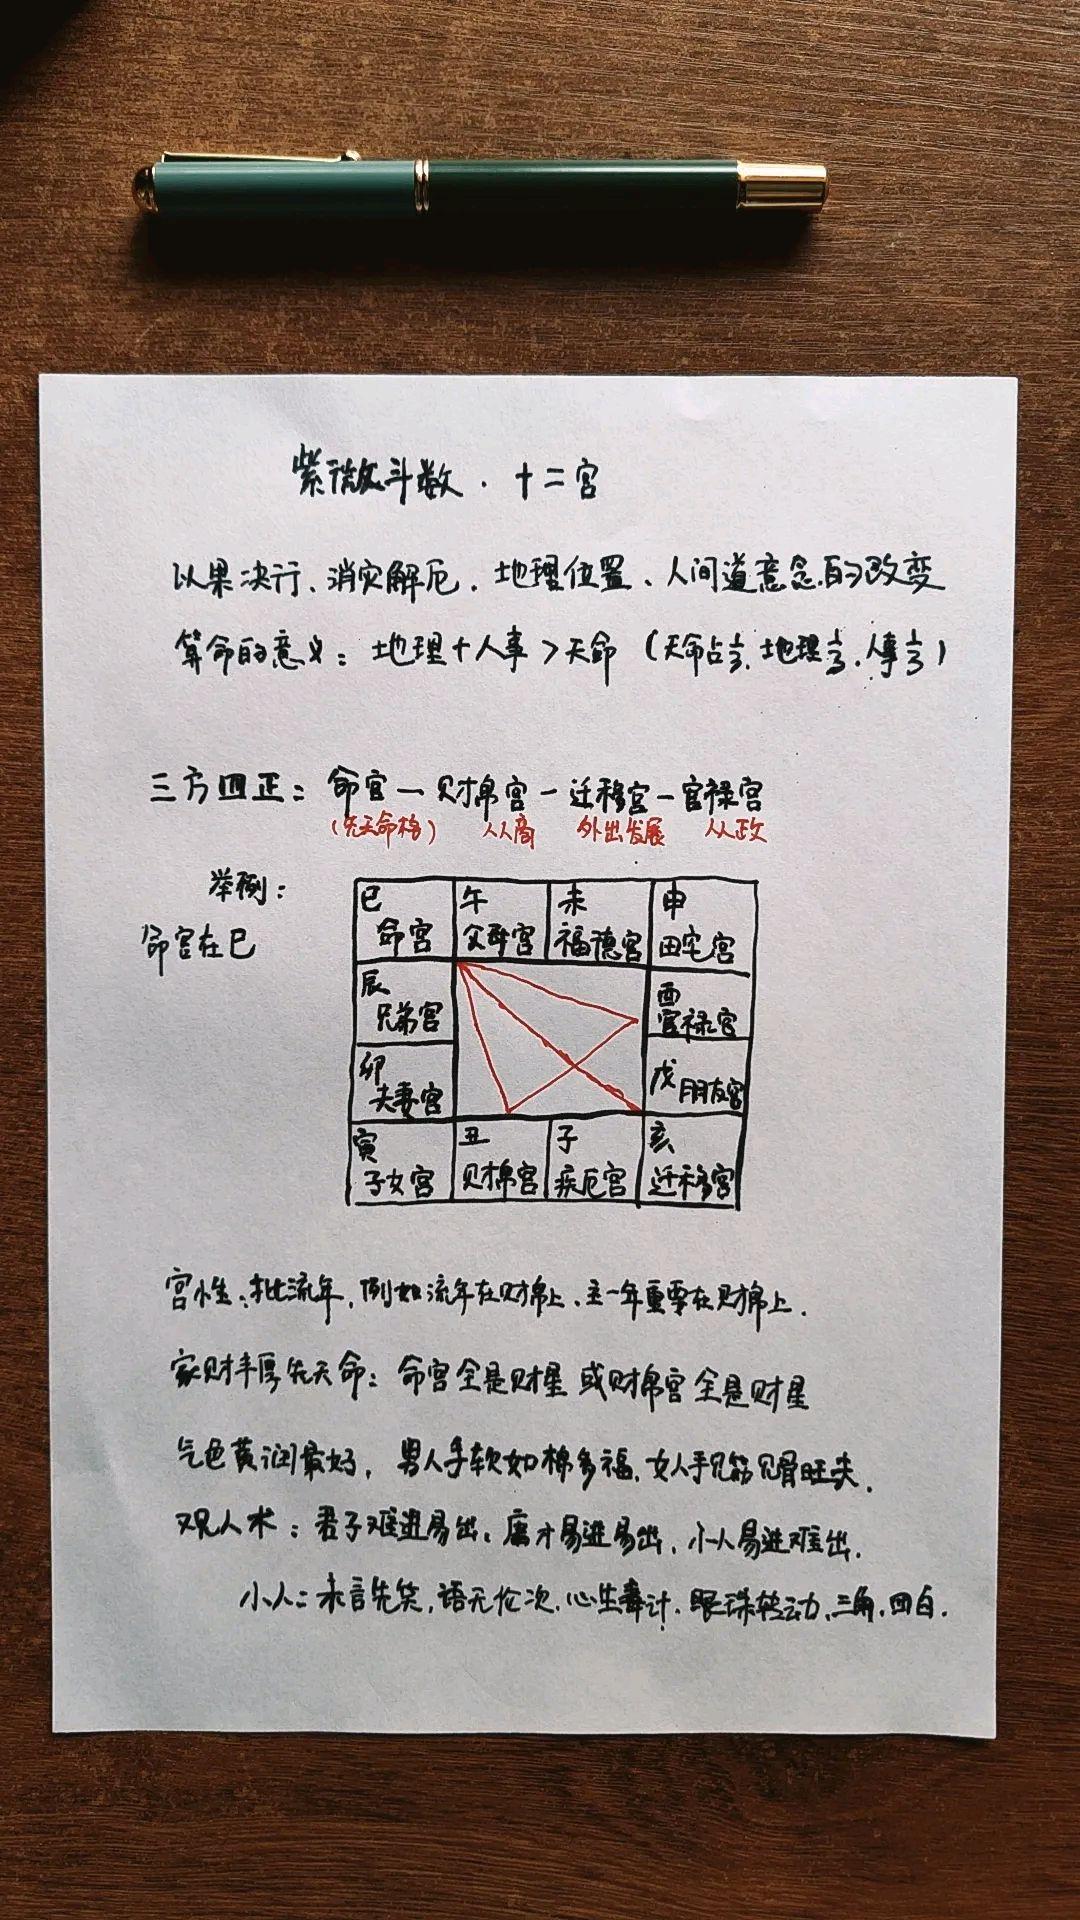 紫微斗数·十二宫
以果决行、消灾解厄、地理位置、人间道意念的改变
算命的意义：地理+人事>天命（天命占1/3、地理1/3、人事1/3）
三方四正：命宫—财帛宫—迁移宫—官禄宫
（先天命格） 从商 外出发展 从政
举例：
命宫在巳
巳 午 未 申
命宫 父母宫 福德宫 田宅宫
辰 酉
兄弟宫 官禄宫
卯 戌
夫妻宫 朋友宫
寅 丑 子 亥
子女宫 财帛宫 疾厄宫 迁移宫
宫性：批流年，例如流年在财帛上、主一年重要在财帛上.
家财丰厚先天命：命宫全是财星或财帛宫全是财星
气色黄润最好，男人手软如棉多福，女人手见筋见骨旺夫.
观人术：君子难进易出、庸才易进易出、小人易进难出.
小人：未言先笑，语无伦次，心生毒计，眼珠转动、三角，四白.